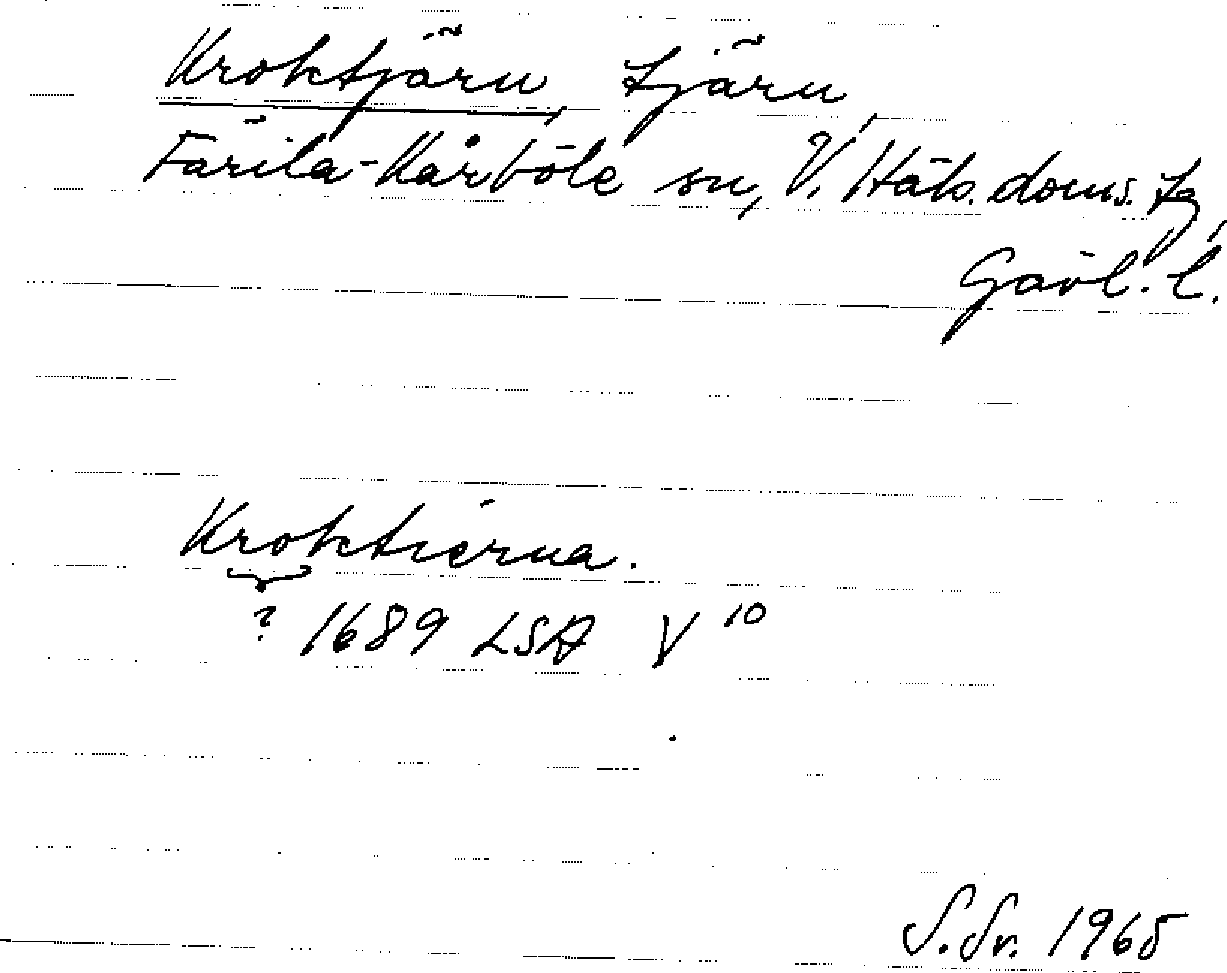 Kroktjärn, tjärn,
Färila-Kårböle sn, V. Häls. doms. tg,
Gävl. l.
Kroktierna.
? 1689 LSA V 10
S. Sv. 1965